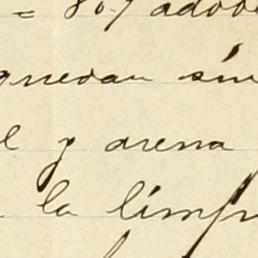 = 807 adobe
quedan sin
l y arena
la limp